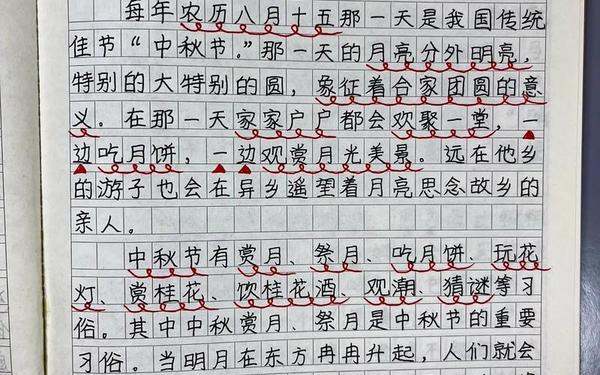 每年农历八月十五那一天是我国传统
佳节“中秋节。”那一天的月亮分外明亮，
特别的大特别的圆，象征着合家团圆的意
义。在那一天家家户户都会欢聚一堂，一
边吃月饼，一边观赏月光美景。远在他乡
的游子也会在异乡遥望着月亮思念故乡的
亲人。
中秋节有赏月、祭月、吃月饼、玩花
灯、赏桂花、饮桂花酒、观潮、猜谜等习
俗。其中中秋赏月、祭月是中秋节的重要
习俗。当明月在东方冉冉升起，人们就会